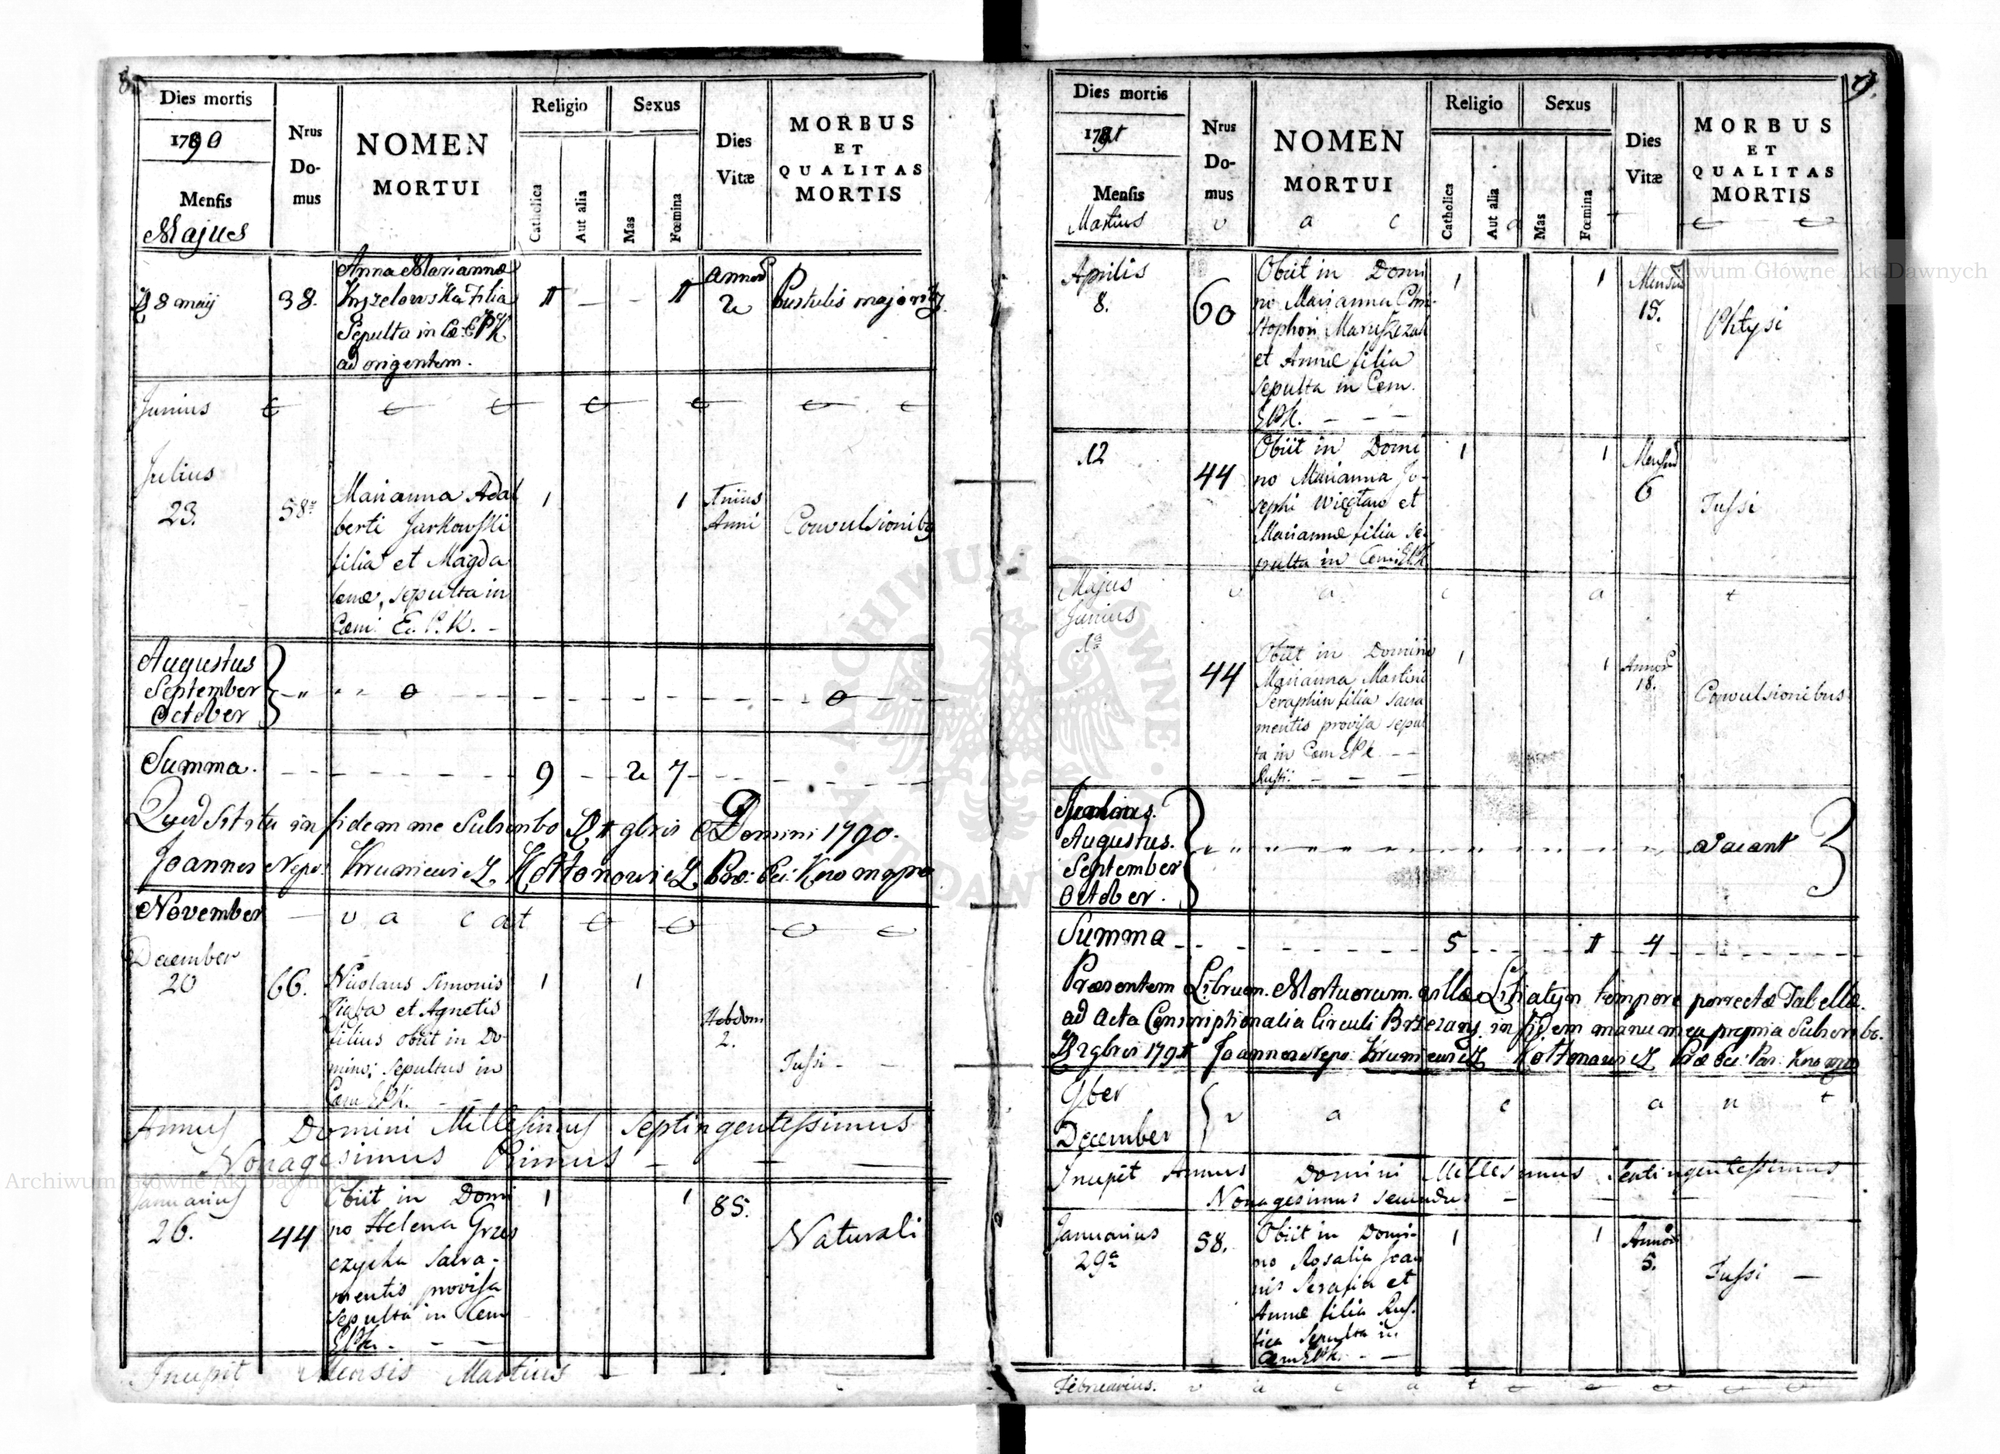 8.
Dies mortis
1790
Mensis
Majus
Nrus
Do-
mus
NOMEN
MORTUI
Religio
Catholica
Aut alia
Sexus
Mas
Fœmina
Dies
Vitæ
MORBUS
ET
QUALITAS
MORTIS
28 maij
38.
Anna Mariannæ
Filia
Sepulta in Cæ: E.P.K
ad origentem.
1 — — 1
annor
2
Pustulis majorib9
Junius
Julius
23.
58
Marianna Adal
berti Jarkowski
filia et Magda
lenæ, sepulta in
Cæmi: Ec. P. K. -
1 1
Anni
Convulsionib9
Augustus
September
October
0 0
Summa. 9 — 2 7
Quod sit ita in fidem me Subscribo D. 1 9bris A Domini 1790.
Joannes Nepo: Kruniewicz Kottonowicz Par: Ec: mpro
November v a c at
December
20
66.
Nicolaus Simonis
et Agnetis
filius obiit in Do-
mino: sepultus in
Cæm EPK.
1 1
Hebdom
2.
Tussi - -
Annus Domini Millesimus Septingentessimus
Nonagesimus Primus —
Januarius
26.
44
Obiit in Domi
no Helena Grzes
czycha Sacra-
mentis provisa
sepulta in Cem
EPK. - —
1 1
85.
Naturali
Incipit Mensis Martius
9.
Dies mortis
1791
Mensis
Martius
Nrus
Do-
mus
NOMEN
MORTUI
Religio
Catholica
Aut alia
Sexus
Mas
Fœmina
Dies
Vitæ
MORBUS
ET
QUALITAS
MORTIS
v a c a t
Aprilis
8.
60
Obiit in Domi
no Marianna Chri-
stophori Maruszczak
et Annæ filia
sepulta in Cem.
EPK. — — —
1 1
Mensiu
15.
Phtysi
12
44
Obiit in Domi
no Marianna Jo-
sephi Więctaw et
Mariannæ filia se-
pulta in Cemi EPK
1 1
Mensiu
6
Tussi
Majus v a c a t
Junius
1a
44
Obiit in Domino
Marianna Martini
Seraphin filia sacra
mentis provisa sepul
ta in Cem EPK - —
Rusti: — — —
1 1
Annor
18.
Convulsionibus
Julius.
Augustus.
September
October.
vacant
Summa 5 1 4
Præsentem Librum Mortuorum villæ Litiatyn tempore porrectæ Tabellæ
ad Acta Conscriptionalia Circuli Brzezans. in fidem manu mea propria Subscribo.
D 2 9bris 1791 Joannes Nepo: Kruniewicz Kottonowicz Par: mpro
9ber
December
v a c a n t
Incipit Annus Domini Millesimus Septingentessimus
Nonagesimus secundus — —
Januarius
29a
58.
Obiit in Domi-
no Rosalia Joan
nis Serafin et
Annæ filia Rus-
tica Sepulta in
Cæm EPK. - —
1 1
Annor
5.
Tussi —
Februarius. v a c a t
Archiwum Główne Akt Dawnych
Archiwum Główne Akt Dawnych
ARCHIWUM GŁÓWNE AKT DAWNYCH